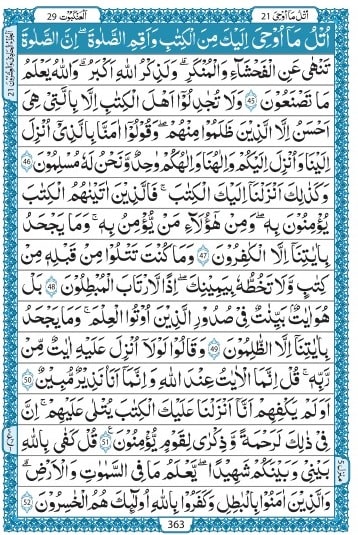 اتل ما اوحی 21
العنکبوت 29
اُتْلُ مَآ اُوْحِیَ اِلَیْكَ مِنَ الْكِتٰبِ وَاَقِمِ الصَّلٰوةَ ؕ اِنَّ الصَّلٰوةَ
تَنْهٰی عَنِ الْفَحْشَآءِ وَالْمُنْكَرِ ؕ وَلَذِكْرُ اللّٰهِ اَكْبَرُ ؕ وَاللّٰهُ یَعْلَمُ
مَا تَصْنَعُوْنَ ﴿45﴾ وَلَا تُجَادِلُوْۤا اَهْلَ الْكِتٰبِ اِلَّا بِالَّتِیْ هِیَ
اَحْسَنُ اِلَّا الَّذِیْنَ ظَلَمُوْا مِنْهُمْ وَقُوْلُوْۤا اٰمَنَّا بِالَّذِیْۤ اُنْزِلَ
اِلَیْنَا وَاُنْزِلَ اِلَیْكُمْ وَاِلٰهُنَا وَاِلٰهُكُمْ وَاحِدٌ وَّنَحْنُ لَهٗ مُسْلِمُوْنَ ﴿46﴾
وَكَذٰلِكَ اَنْزَلْنَاۤ اِلَیْكَ الْكِتٰبَ ؕ فَالَّذِیْنَ اٰتَیْنٰهُمُ الْكِتٰبَ
یُؤْمِنُوْنَ بِهٖ ۚ وَمِنْ هٰۤؤُلَآءِ مَنْ یُّؤْمِنُ بِهٖ ؕ وَمَا یَجْحَدُ
بِاٰیٰتِنَاۤ اِلَّا الْكٰفِرُوْنَ ﴿47﴾ وَمَا كُنْتَ تَتْلُوْا مِنْ قَبْلِهٖ مِنْ
كِتٰبٍ وَّلَا تَخُطُّهٗ بِیَمِیْنِكَ اِذًا لَّارْتَابَ الْمُبْطِلُوْنَ ﴿48﴾ بَلْ
هُوَ اٰیٰتٌۢ بَیِّنٰتٌ فِیْ صُدُوْرِ الَّذِیْنَ اُوْتُوا الْعِلْمَ ؕ وَمَا یَجْحَدُ
بِاٰیٰتِنَاۤ اِلَّا الظّٰلِمُوْنَ ﴿49﴾ وَقَالُوْا لَوْلَاۤ اُنْزِلَ عَلَیْهِ اٰیٰتٌ مِّنْ
رَّبِّهٖ ؕ قُلْ اِنَّمَا الْاٰیٰتُ عِنْدَ اللّٰهِ ؕ وَاِنَّمَاۤ اَنَا نَذِیْرٌ مُّبِیْنٌ ﴿50﴾
اَوَلَمْ یَكْفِهِمْ اَنَّاۤ اَنْزَلْنَا عَلَیْكَ الْكِتٰبَ یُتْلٰی عَلَیْهِمْ ؕ اِنَّ
فِیْ ذٰلِكَ لَرَحْمَةً وَّ ذِكْرٰی لِقَوْمٍ یُّؤْمِنُوْنَ ﴿51﴾ قُلْ كَفٰی بِاللّٰهِ
بَیْنِیْ وَبَیْنَكُمْ شَهِیْدًا ۚ یَعْلَمُ مَا فِی السَّمٰوٰتِ وَالْاَرْضِ ؕ
وَالَّذِیْنَ اٰمَنُوْا بِالْبَاطِلِ وَكَفَرُوْا بِاللّٰهِ اُولٰٓئِكَ هُمُ الْخٰسِرُوْنَ ﴿52﴾
363